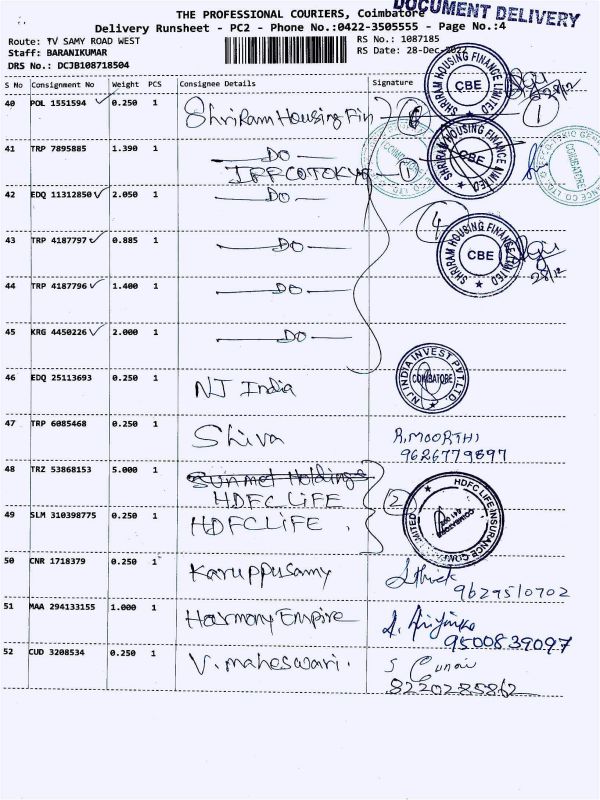 THE PROFESSIONAL COURIERS, Coimbatore
DOCUMENT DELIVERY
Delivery Runsheet - PC2 - Phone No.:0422-3505555 - Page No.:4
Route: TV SAMY ROAD WEST
RS No.: 1087185
Staff: BARANIKUMAR
RS Date: 28-Dec-2022
DRS No.: DCJB108718504
S No Consignment No Weight PCS Consignee Details Signature
40 POL 1551594 0.250 1 Shriram Housing Fin
SHRIRAM HOUSING FINANCE LIMITED CBE
28/12
1
41 TRP 7895885 1.390 1 DO
IFFCO TOKYO 1
SHRIRAM HOUSING FINANCE LIMITED CBE
COIMBATORE
COIMBATORE
42 EDQ 11312850 2.050 1 DO
4
43 TRP 4187797 0.885 1 DO
SHRIRAM HOUSING FINANCE LIMITED CBE
28/12
44 TRP 4187796 1.400 1 DO
45 KRG 4450226 2.000 1 DO
46 EDQ 25113693 0.250 1 NJ India
NJ INDIA INVEST PVT. LTD. COIMBATORE
47 TRP 6085468 0.250 1 Shiva
R.MOORTHI
9626779897
48 TRZ 53868153 5.000 1
HDFC LIFE
2
HDFC LIFE INSURANCE
49 SLM 310398775 0.250 1 HDFC LIFE
50 CNR 1718379 0.250 1 Karuppusamy
9629510702
51 MAA 294133155 1.000 1 Harmony Empire
9500839097
52 CUD 3208534 0.250 1 V. maheswari.
8220285862